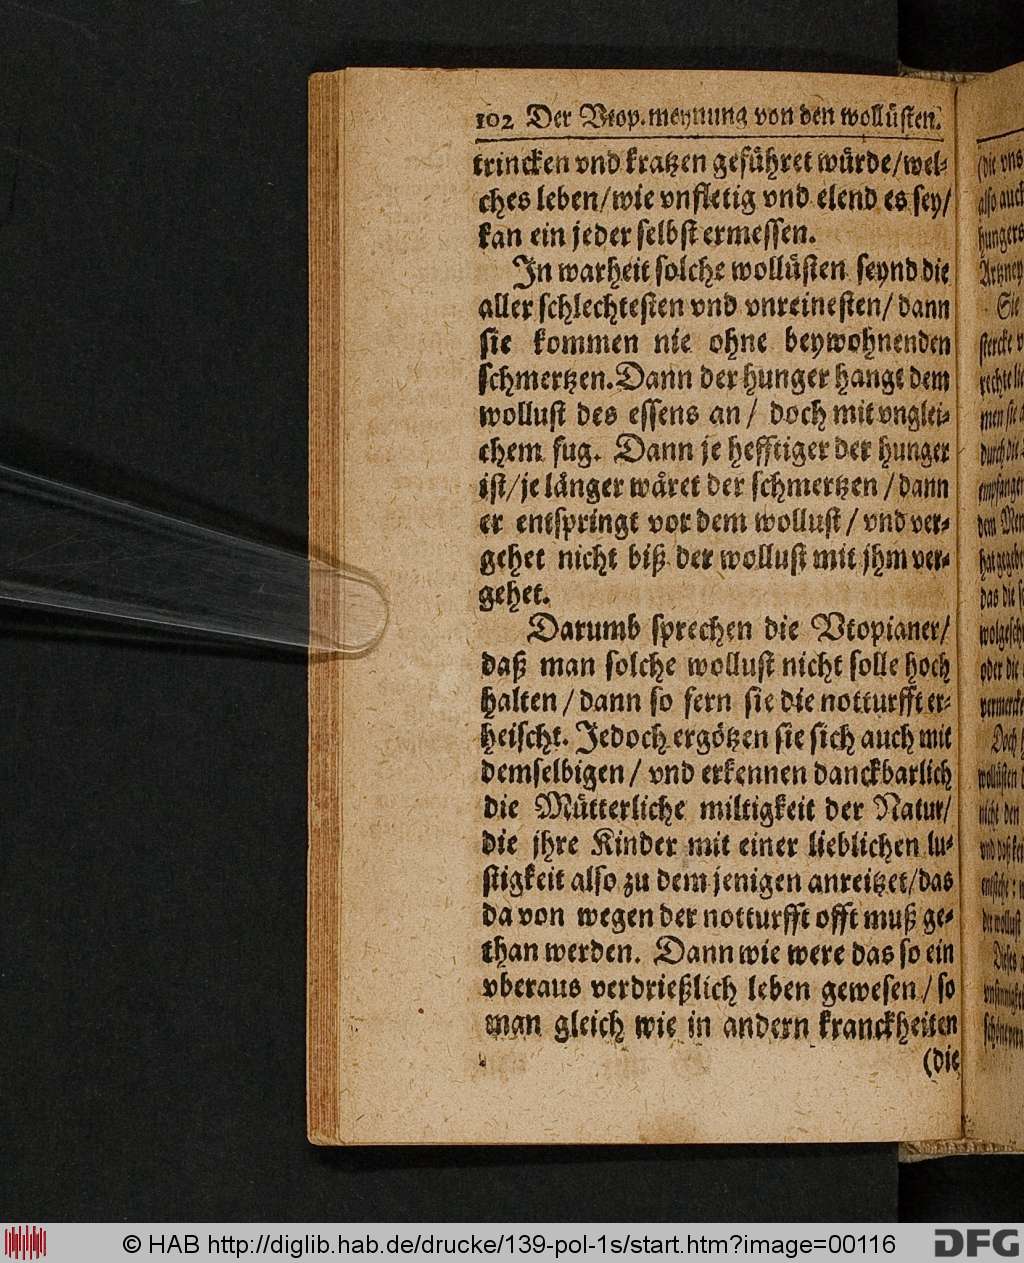 102 Der Vtop. meynung von den wollüsten.
trincken vnd kratzen geführet würde/wel-
ches leben/wie vnfletig vnd elend es sey/
kan ein jeder selbst ermessen.
In warheit solche wollüsten seynd die
aller schlechtesten vnd vnreinesten/ dann
sie kommen nie ohne beywohnenden
schmertzen. Dann der hunger hangt dem
wollust des essens an/ doch mit vnglei-
chem fug. Dann je hefftiger der hunger
ist/je länger wäret der schmertzen/dann
er entspringt vor dem wollust/ vnd ver-
gehet nicht biß der wollust mit jhm ver-
gehet.
Darumb sprechen die Vtopianer/
daß man solche wollust nicht solle hoch
halten/ dann so fern sie die notturfft er-
heischt. Jedoch ergötzen sie sich auch mit
demselbigen/ vnd erkennen danckbarlich
die Mütterliche miltigkeit der Natur/
die jhre Kinder mit einer lieblichen lu-
stigkeit also zu dem jenigen anreitzet/das
da von wegen der notturfft offt muß ge-
than werden. Dann wie were das so ein
vberaus verdrießlich leben gewesen/ so
man gleich wie in andern kranckheiten
(die
(die vns
also auch
hungers
Artzney
Sie
© HAB http://diglib.hab.de/drucke/139-pol-1s/start.htm?image=00116
DFG